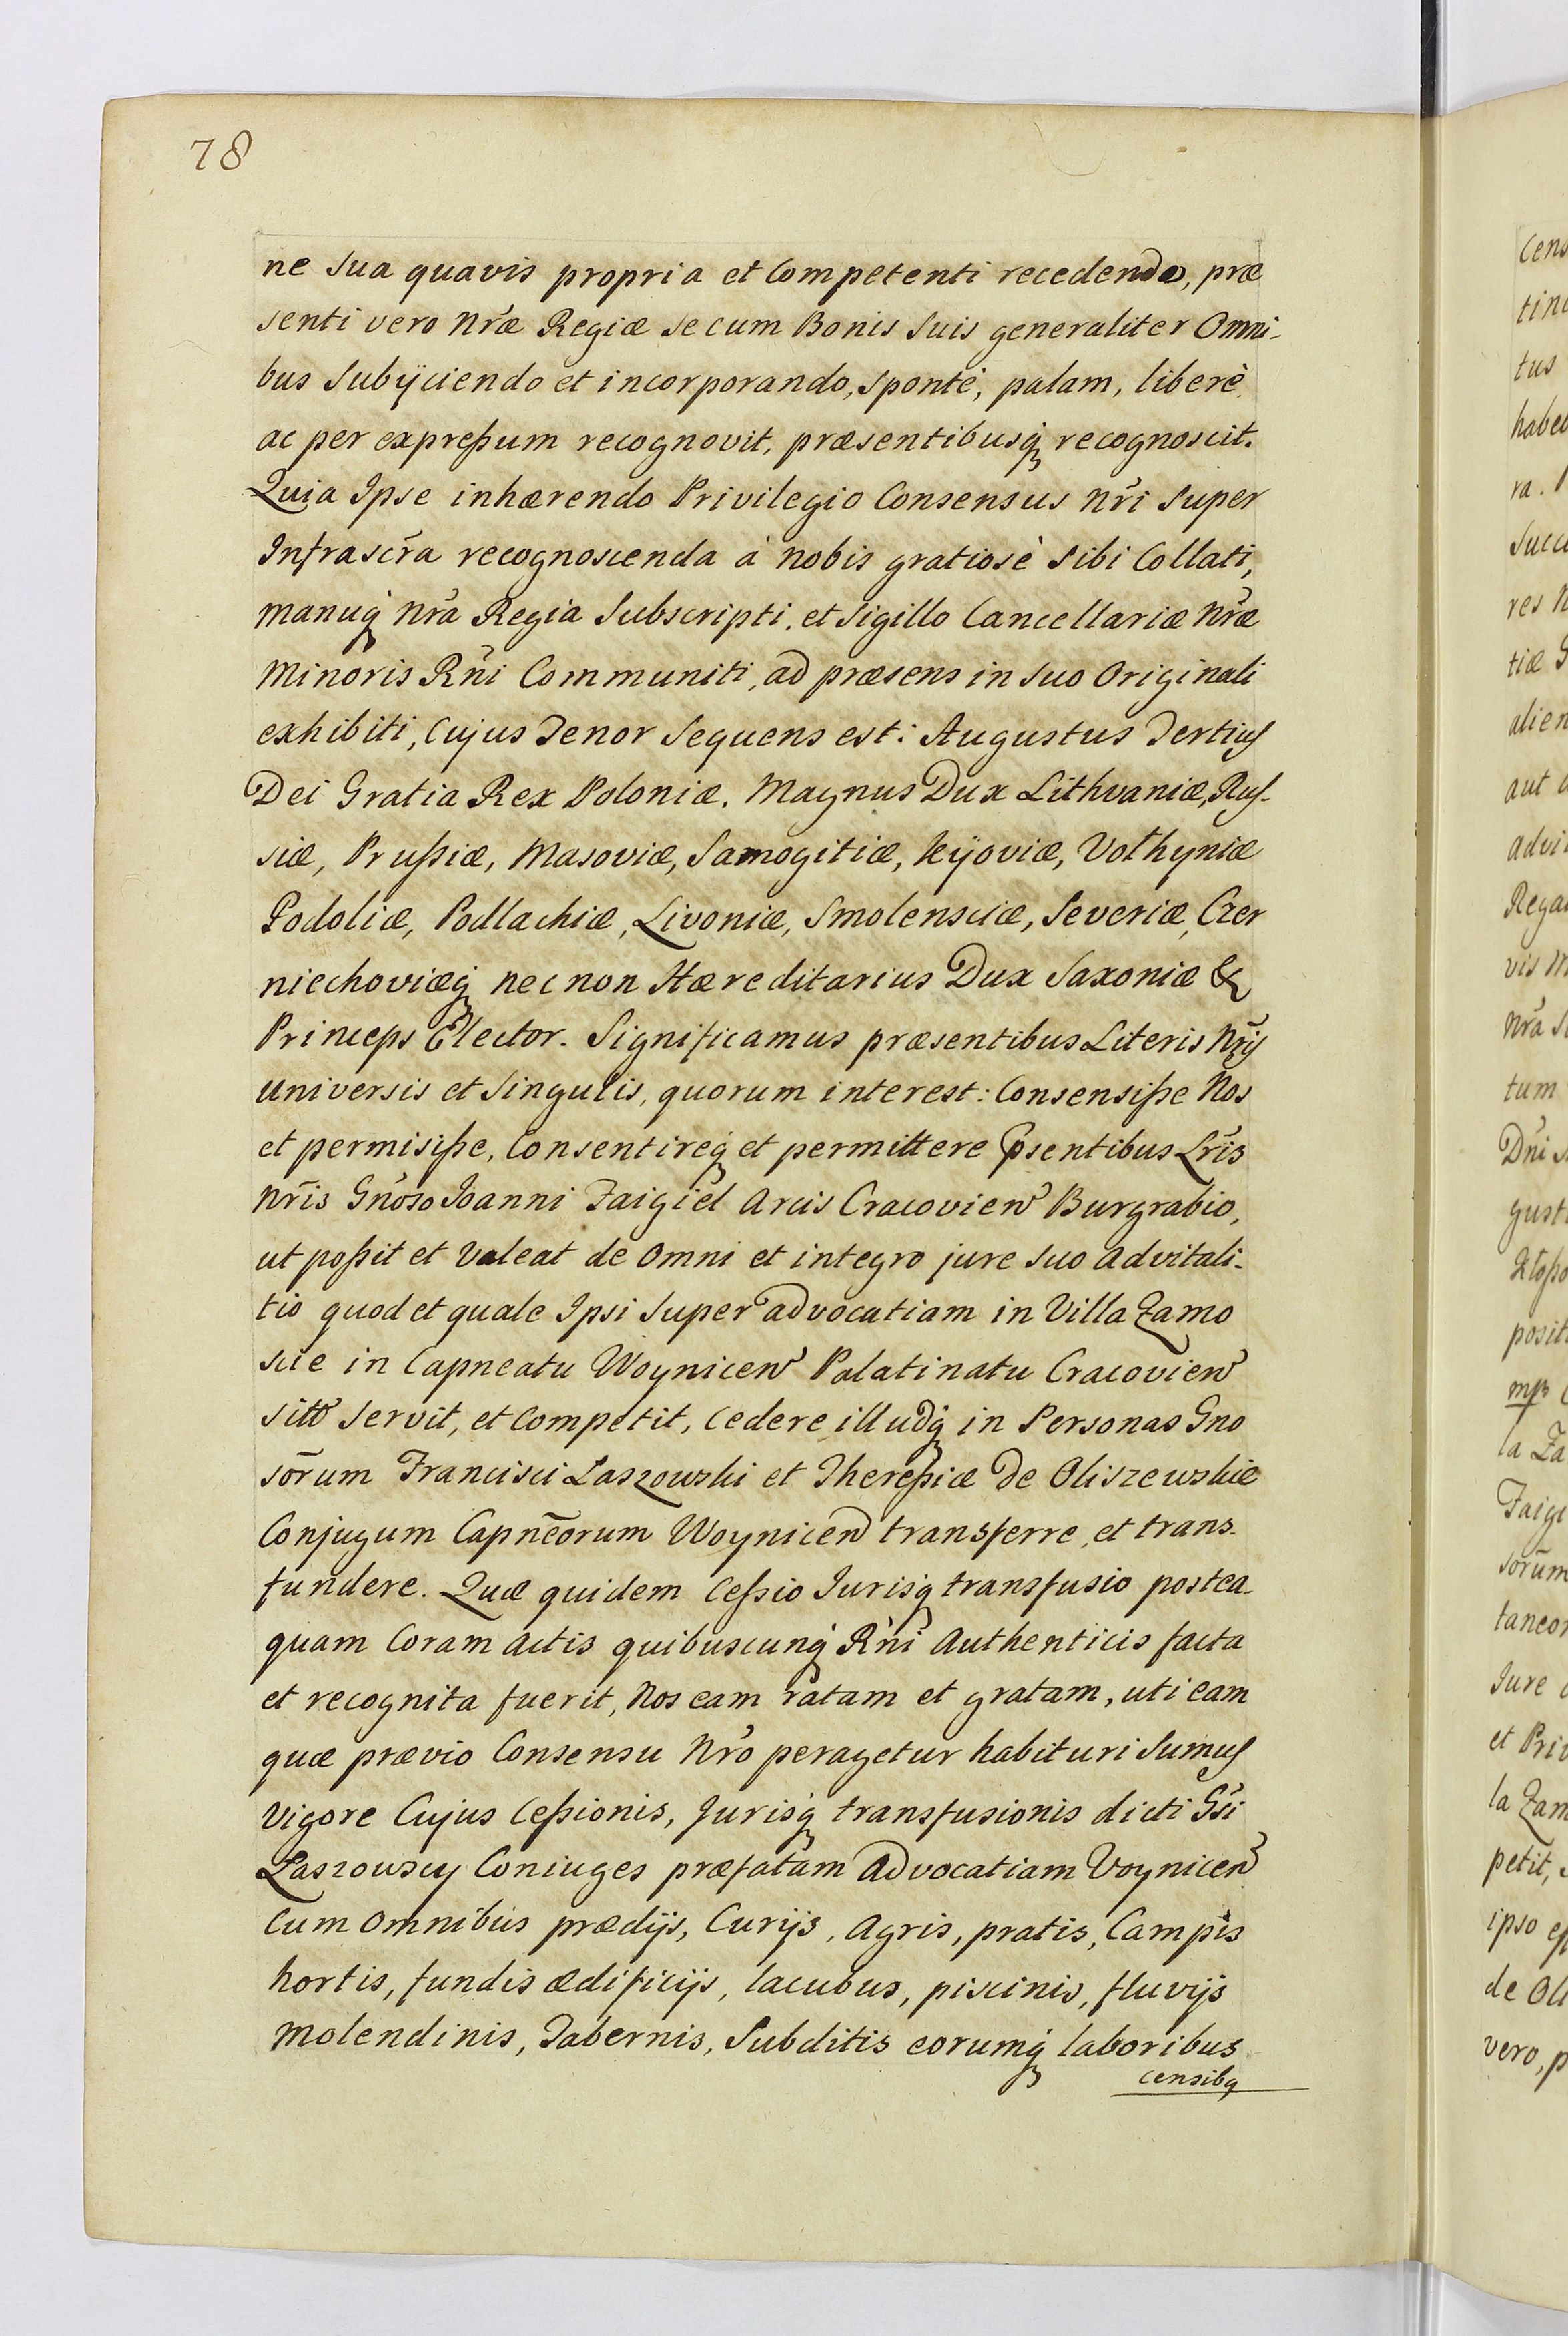 78
ne sua quavis propria et Competenti recedendo, præ
senti vero Nr̃æ Regiæ se cum Bonis Suis generaliter Omni-
bus Subijciendo et incorporando, sponte, palam, liberè
ac per expreßum recognovit, præsentibusq́ recognoscit.
Quia Ipse inhærendo Privilegio Consensus Nr̃i Super
Infrascr̃a recognoscenda à Nobis gratiosè Sibi Collati,
Manuq́ Nr̃a Regia Subscripti, et Sigillo Cancellariæ Nr̃æ
Minoris Rñi Communiti, ad præsens in Suo Originali
exhibiti, Cujus Tenor Sequens est: Augustus Tertius
Dei Gratia Rex Poloniæ, Magnus Dux Lithvaniæ, Rus-
siæ, Prußiæ, Masoviæ, Samogitiæ, Kijoviæ, Volhyniæ
Podoliæ, Podlachiæ, Livoniæ, Smolensciæ, Severiæ, Czer
niechoviæq́ nec non Hæreditarius Dux Saxoniæ &
Princeps Elector. Significamus præsentibus Literis Nr̃is
Universis et Singulis, quorum interest: Consensiße Nos
et permisiße, Consentireq́ et permittere p̃sentibus Lr̃is
Nr̃is Gñoso Joanni Faigiel Arcis Cracovien̄ Burgrabio,
ut poßit et Valeat de Omni et integro jure Suo Advitali-
tio quod et quale Ipsi Super advocatiam in Villa Zamo
scie in Capneatu Woynicen̄ Palatinatu Cracovien̄
sitō Servit, et Competit, Cedere illudq́ in Personas Gno
sõrum Francisci Laszowski et Thereßiæ de Oliszewskie
Conjugum Capnẽorum Woynicen̄ transferre, et trans-
fundere. Quæ quidem Ceßio Jurisq́ transfusio postea
quam Coram Actis quibuscunq́ Rñi Authenticis facta
et recognita fuerit, Nos eam ratam et gratam, uti eam
quæ prævio Consensu Nr̃o peragetur habituri Sumus
Vigore Cujus Ceßionis, Jurisq́ transfusionis dicti Gñi
Laszowscy Coniuges præfatam Advocatiam Voynicen̄
Cum Omnibus prædijs, Curijs, Agris, pratis, Campis
hortis, fundis ædificijs, lacubus, piscinis, fluvijs
Molendinis, Tabernis, Subditis eorumq́ laboribus
censibq
Cens
tus
habe
ra.
res N
tiæ G
alien
aut
advi
Rega
vis
Nr̃a
tum
Dñi
gust
posit
la Za
Faigi
sorum
Jure
et Priv
la Zam
petit,
ipso
de Oli
vero, p